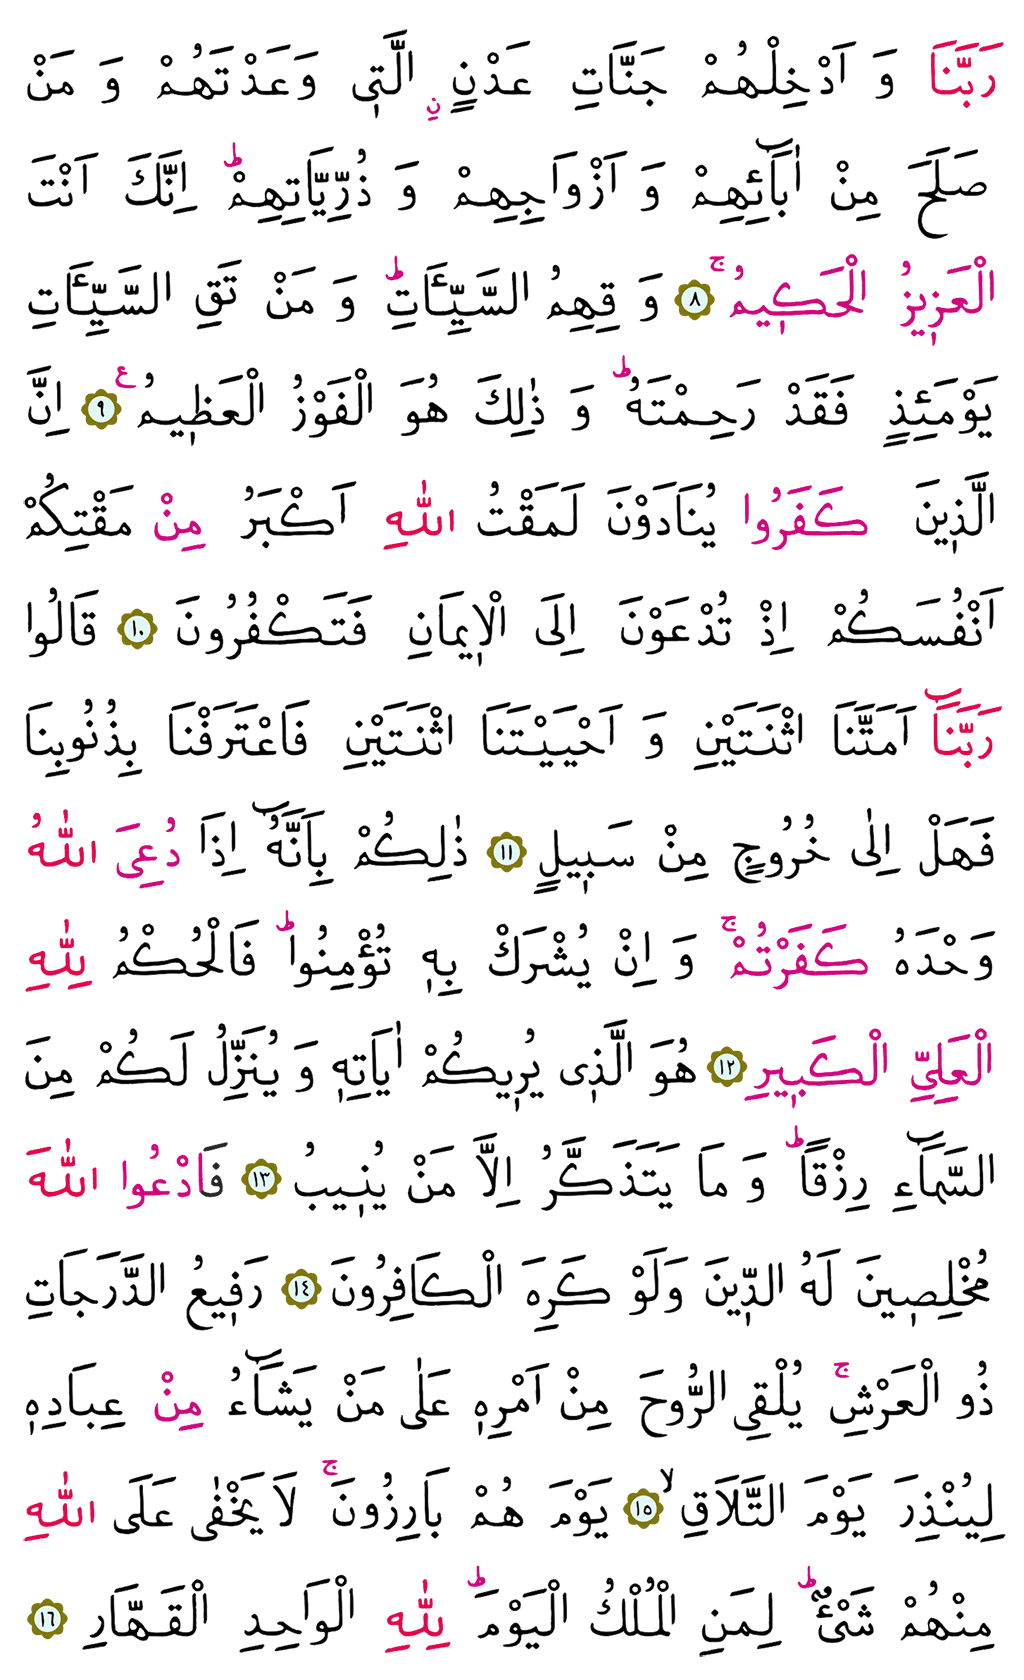 رَبَّنَا وَ اَدْخِلْهُمْ جَنَّاتِ عَدْنٍ ࣙنِ الَّتٖى وَعَدْتَهُمْ وَ مَنْ
صَلَحَ مِنْ اٰبَٓائِهِمْ وَ اَزْوَاجِهِمْ وَ ذُرِّيَّاتِهِمْؕ اِنَّكَ اَنْتَ
الْعَزٖيزُ الْحَكٖيمُۚ ﴿٨﴾ وَ قِهِمُ السَّيِّـَٔاتِؕ وَ مَنْ تَقِ السَّيِّـَٔاتِ
يَوْمَئِذٍ فَقَدْ رَحِمْتَهُؕ وَ ذٰلِكَ هُوَ الْفَوْزُ الْعَظٖيمُ ع ﴿٩﴾ اِنَّ
الَّذٖينَ كَفَرُوا يُنَادَوْنَ لَمَقْتُ اللّٰهِ اَكْبَرُ مِنْ مَقْتِكُمْ
اَنْفُسَكُمْ اِذْ تُدْعَوْنَ اِلَى الْاٖيمَانِ فَتَكْفُرُونَ ﴿١٠﴾ قَالُوا
رَبَّنَٓا اَمَتَّنَا اثْنَتَيْنِ وَ اَحْيَيْتَنَا اثْنَتَيْنِ فَاعْتَرَفْنَا بِذُنُوبِنَا
فَهَلْ اِلٰى خُرُوجٍ مِنْ سَبٖيلٍ ﴿١١﴾ ذٰلِكُمْ بِاَنَّهُٓ اِذَا دُعِىَ اللّٰهُ
وَحْدَهُ كَفَرْتُمْۚ وَ اِنْ يُشْرَكْ بِهٖ تُؤْمِنُواؕ فَالْحُكْمُ لِلّٰهِ
الْعَلِىِّ الْكَبٖيرِ ﴿١٢﴾ هُوَ الَّذٖى يُرٖيكُمْ اٰيَاتِهٖ وَ يُنَزِّلُ لَكُمْ مِنَ
السَّمَٓاءِ رِزْقًاؕ وَ مَا يَتَذَكَّرُ اِلَّا مَنْ يُنٖيبُ ﴿١٣﴾ فَادْعُوا اللّٰهَ
مُخْلِصٖينَ لَهُ الدّٖينَ وَلَوْ كَرِهَ الْكَافِرُونَ ﴿١٤﴾ رَفٖيعُ الدَّرَجَاتِ
ذُو الْعَرْشِۚ يُلْقِى الرُّوحَ مِنْ اَمْرِهٖ عَلٰى مَنْ يَشَٓاءُ مِنْ عِبَادِهٖ
لِيُنْذِرَ يَوْمَ التَّلَاقِۙ ﴿١٥﴾ يَوْمَ هُمْ بَارِزُونَۚ لَا يَخْفٰى عَلَى اللّٰهِ
مِنْهُمْ شَىْءٌؕ لِمَنِ الْمُلْكُ الْيَوْمَؕ لِلّٰهِ الْوَاحِدِ الْقَهَّارِ ﴿١٦﴾